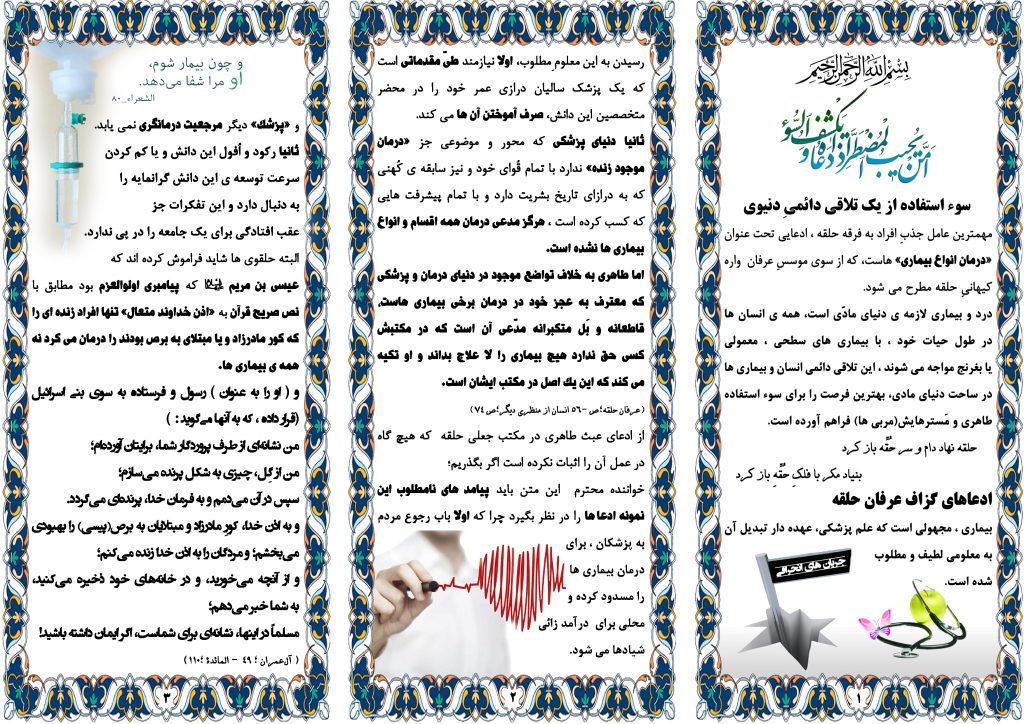 بِسْمِ اللَّهِ الرَّحْمَٰنِ الرَّحِيمِ
أَمَّن يُجِيبُ الْمُضْطَرَّ إِذَا دَعَاهُ وَيَكْشِفُ السُّوءَ
سوء استفاده از یک تلاقی دائمیِ دنیوی
مهمترین عامل جذب افراد به فرقه حلقه ، ادعایی تحت عنوان
«درمان انواع بیماری» هاست، که از سوی موسسِ عرفان واره
کیهانیِ حلقه مطرح می شود.
درد و بیماری لازمه ی دنیای مادّی است، همه ی انسان ها
در طول حیات خود ، با بیماری های سطحی ، معمولی
یا بغرنج مواجه می شوند ، این تلاقی دائمی انسان و بیماری ها
در ساحت دنیای مادی، بهترین فرصت را برای سوء استفاده
طاهری و مَسترهایش(مربی ها) فراهم آورده است.
حلقه نهاد دام و سر حُقّه باز کرد
بنیاد مکر با فلکِ حُقّه باز کرد
ادعاهای گزاف عرفان حلقه
بیماری ، مجهولی است که علم پزشکی، عهده دار تبدیل آن
به معلومی لطیف و مطلوب
شده است.
جریان های انحرافی
۱
رسیدن به این معلومِ مطلوب، اولا نیازمند طیّ مقدماتی است
که یک پزشک سالیان درازی عمر خود را در محضر
متخصصین این دانش، صرف آموختن آن ها می کند.
ثانیا دنیای پزشکی که محور و موضوعی جز «درمان
موجود زنده» ندارد با تمام قُوای خود و نیز سابقه ی کُهنی
که به درازای تاریخ بشریت دارد و با تمام پیشرفت هایی
که کسب کرده است ، هرگز مدعی درمان همه اقسام و انواع
بیماری ها نشده است.
اما طاهری به خلاف تواضع موجود در دنیای درمان و پزشکی
که معترف به عجز خود در درمان برخی بیماری هاست،
قاطعانه و بَل متکبرانه مدّعی آن است که در مکتبش
کسی حق ندارد هیچ بیماری را لا علاج بداند و او تکیه
می کند که این یك اصل در مکتب ایشان است.
(عرفان حلقه؛ص ۵۶- انسان از منظری دیگر؛ص ۷۴)
از ادعای عبث طاهری در مکتب جعلی حلقه که هیچ گاه
در عمل آن را اثبات نکرده است اگر بگذریم؛
خواننده محترم این متن باید پیامد های نامطلوب این
نمونه ادعاها را در نظر بگیرد چرا که اولا باب رجوع مردم
به پزشکان ، برای
درمان بیماری ها
را مسدود کرده و
محلی برای درآمد زائی
شیادها می شود.
۲
و چون بیمار شوم،
او مرا شفا می‌دهد.
الشعراء_۸۰
و «پزشك» دیگر مرجعیت درمانگری نمی یابد.
ثانیا رکود و اُفول این دانش و یا کم کردن
سرعت توسعه ی این دانش گرانمایه را
به دنبال دارد و این تفکرات جز
عقب افتادگی برای یک جامعه را در پی ندارد.
البته حلقوی ها شاید فراموش کرده اند که
عیسی بن مریم که پیامبری اولوالعزم بود مطابق با
نص صریح قرآن به «اذن خداوند متعال» تنها افراد زنده ای را
که کور مادرزاد و یا مبتلای به برص بودند را درمان می کرد نه
همه ی بیماری ها.
و ( او را به عنوان ) رسول و فرستاده به سوی بنی اسرائیل
(قرار داده ، که به آنها می‌گوید : )
من نشانه‌ای از طرف پروردگار شما، برایتان آورده‌ام؛
من از گِل، چیزی به شکل پرنده می‌سازم؛
سپس در آن می‌دمم و به فرمان خدا، پرنده‌ای می‌گردد.
و به اذن خدا، کورِ مادرزاد و مبتلایان به برص(پیسی) را بهبودی
می‌بخشم؛ و مردگان را به اذن خدا زنده می‌کنم؛
و از آنچه می‌خورید، و در خانه‌های خود ذخیره می‌کنید،
به شما خبر می‌دهم؛
مسلماً در اینها، نشانه‌ای برای شماست، اگر ایمان داشته باشید!
( آل‌عمران ؛ ۴۹ - المائدة ؛۱۱۰)
۳